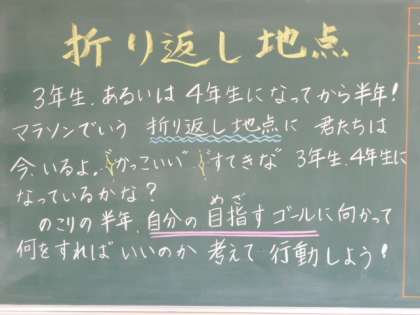 折り返し地点
3年生、あるいは4年生になってから半年!
マラソンでいう 折り返し地点に 君たちは
今、いるよ。"かっこいい" "すてきな" 3年生、4年生に
なっているかな?
のこりの半年、自分の目指すゴールに向かって
めざ
何をすれば いいのか 考えて 行動しよう!